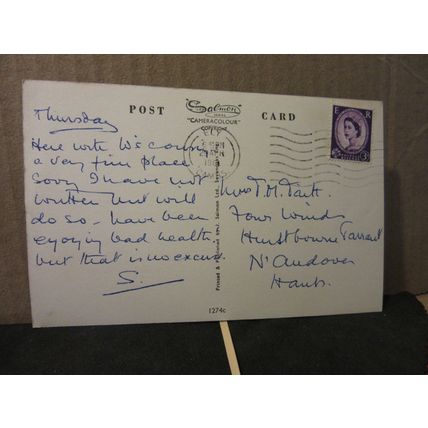 POST CARD
Salmon
SERIES
"CAMERACOLOUR"
COPYRIGHT
ELY
E R
3D
Thursday
Here with W's cousin
a very fine place
Sorry I have not
written but will
do so - have been
enjoying bad health
but that is no excuse.
S.
Printed & Published by J. Salmon Ltd., Sevenoaks
Mrs T. M.
Four Winds
Hurstbourne Tarrant
N' Andover
Hants.
1274c